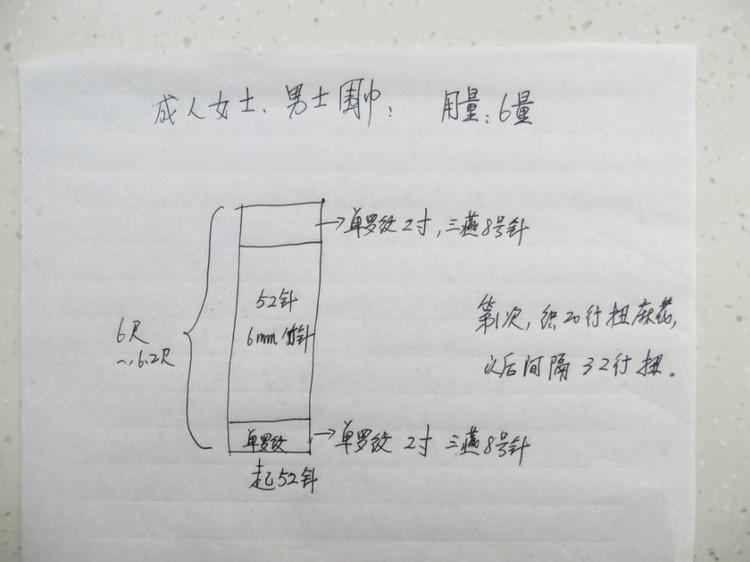 成人女士、男士围巾： 用量：6量
→单罗纹 2寸，三燕8号针
52针
6mm 竹针
6尺
～6.2尺
第1次，织20行扭麻花，
以后间隔 32行扭。
单罗纹
→单罗纹 2寸 三燕8号针
起52针